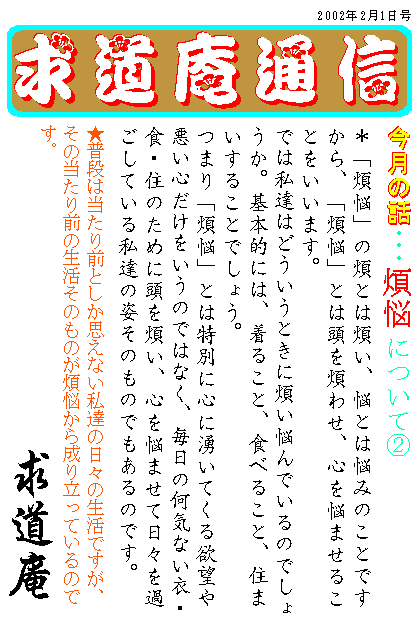 2002年2月1日号
求道庵通信
今月の話…煩悩について②
＊「煩悩」の煩とは煩い、悩とは悩みのことです
から、「煩悩」とは頭を煩わせ、心を悩ませるこ
とをいいます。
では私達はどういうときに煩い悩んでいるのでしょ
うか。基本的には、着ること、食べること、住ま
いすることでしょう。
つまり「煩悩」とは特別に心に湧いてくる欲望や
悪い心だけをいうのではなく、毎日の何気ない衣・
食・住のために頭を煩い、心を悩ませて日々を過
ごしている私達の姿そのものでもあるのです。
★普段は当たり前としか思えない私達の日々の生活ですが、
その当たり前の生活そのものが煩悩から成り立っているので
す。
求道庵